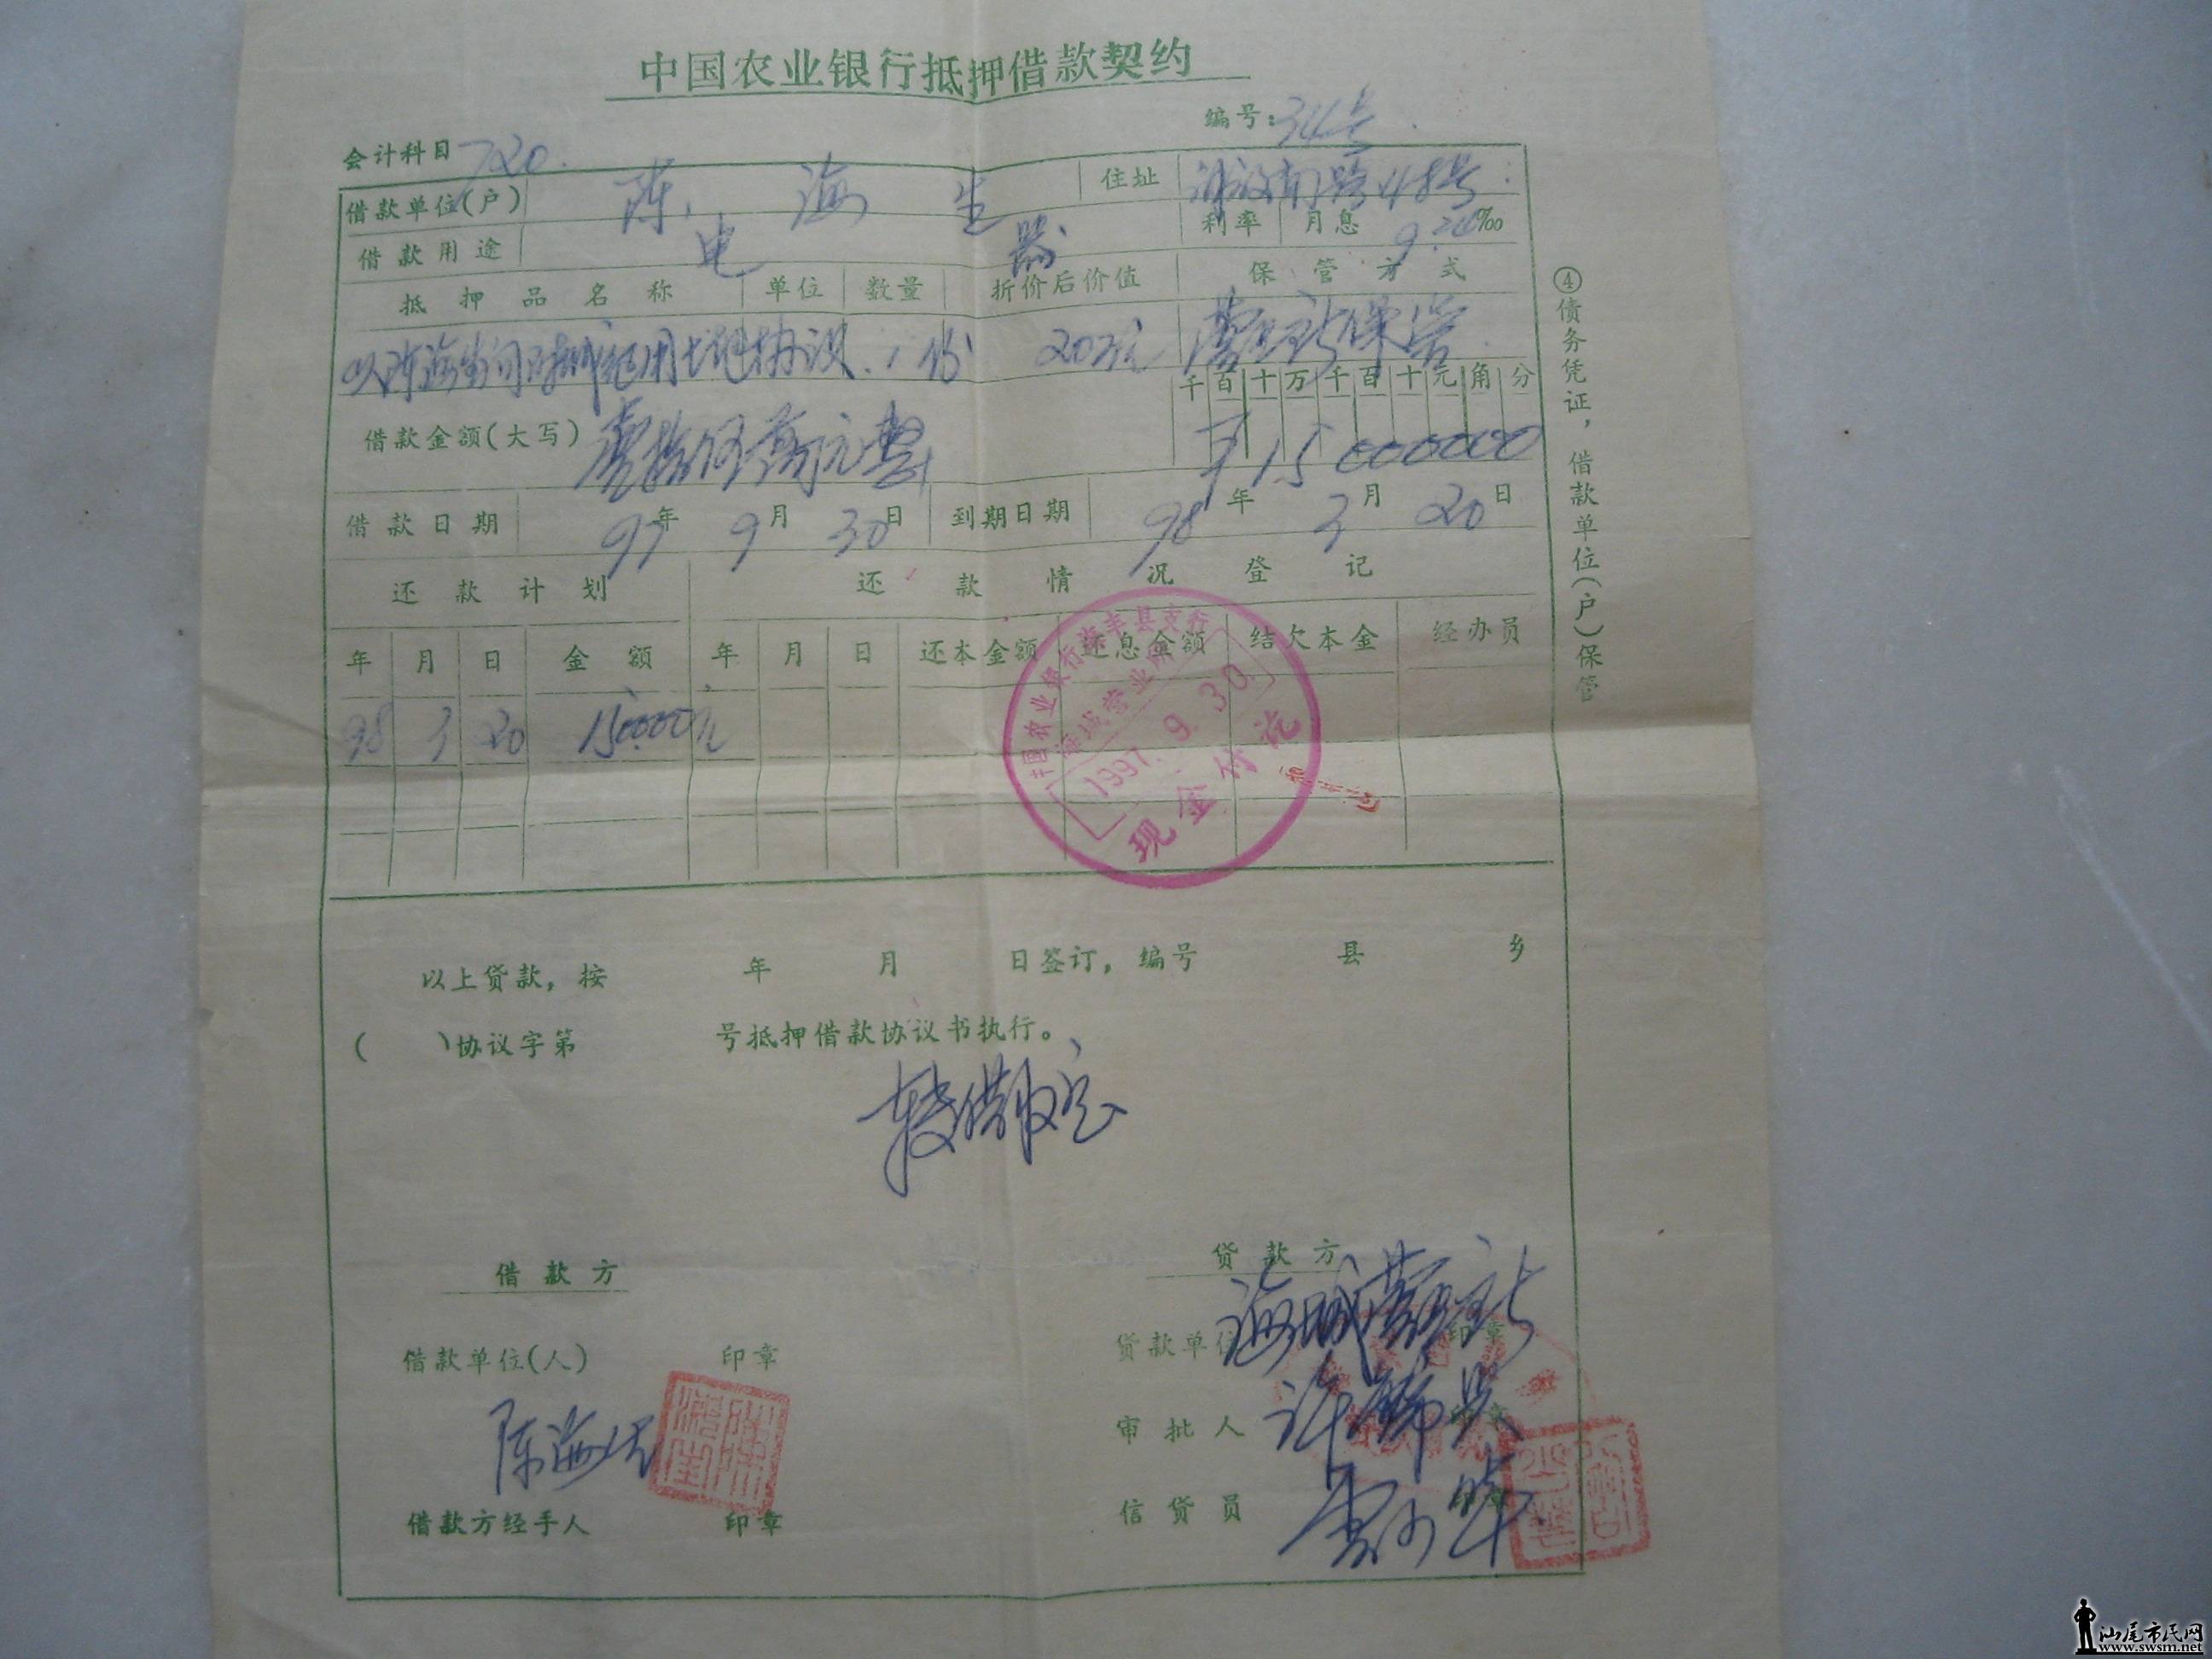 中国农业银行抵押借款契约
编号:34号
会计科目 720
借款单位(户) 陈海生 住址 解放南路48号
借款用途 电器 利率 月息 9.24‰
抵押品名称 单位 数量 折价后价值 保管方式
以陈海生 用土地协议 1份 20万元 营业所保管
千百十万千百十元角分
借款金额(大写) 壹拾伍万元整 ¥15000000
借款日期 97年9月30日 到期日期 98年3月20日
还款计划 还款情况登记
年 月 日 金额 年 月 日 还本金额 还息金额 结欠本金 经办员
98 3 20 150000元
中国农业银行海丰县支行
海城营业所
1997.9.30
现金付讫
④债务凭证,借款单位(户)保管
以上贷款,按 年 月 日签订,编号 县 乡
( )协议字第 号抵押借款协议书执行。
转借收息
借款方 贷款方
借款单位(人) 印章 贷款单位 海城营业所 印章
陈海生 陈海生
审批人 印章
借款方经手人 印章 信贷员 印章
汕尾市民网
www.swsm.net